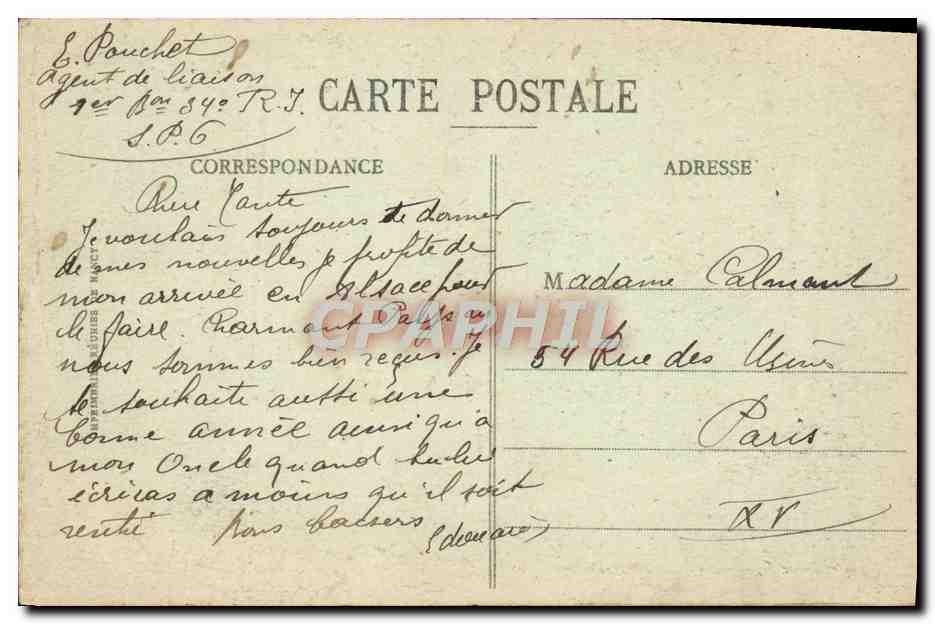 E. Pouchet
agent de liaison
1er Bon 34e R.I.
S.P.6
CARTE POSTALE
CORRESPONDANCE
ADRESSE
Chere Tante
Je voulais toujours te donner
de mes nouvelles je profite de
mon arrivée en Alsace pour
le faire. Charmant Pays
nous sommes bien reçus. Je
te souhaite aussi une
bonne année ainsi qu'a
mon Oncle quand tu lui
écriras a moins qu'il soit
rentré Bons baisers
Edouard
Madame Calmant
54 Rue des Usines
Paris
XV
IMPRIMERIES RÉUNIES DE NANCY
CPAPHIL